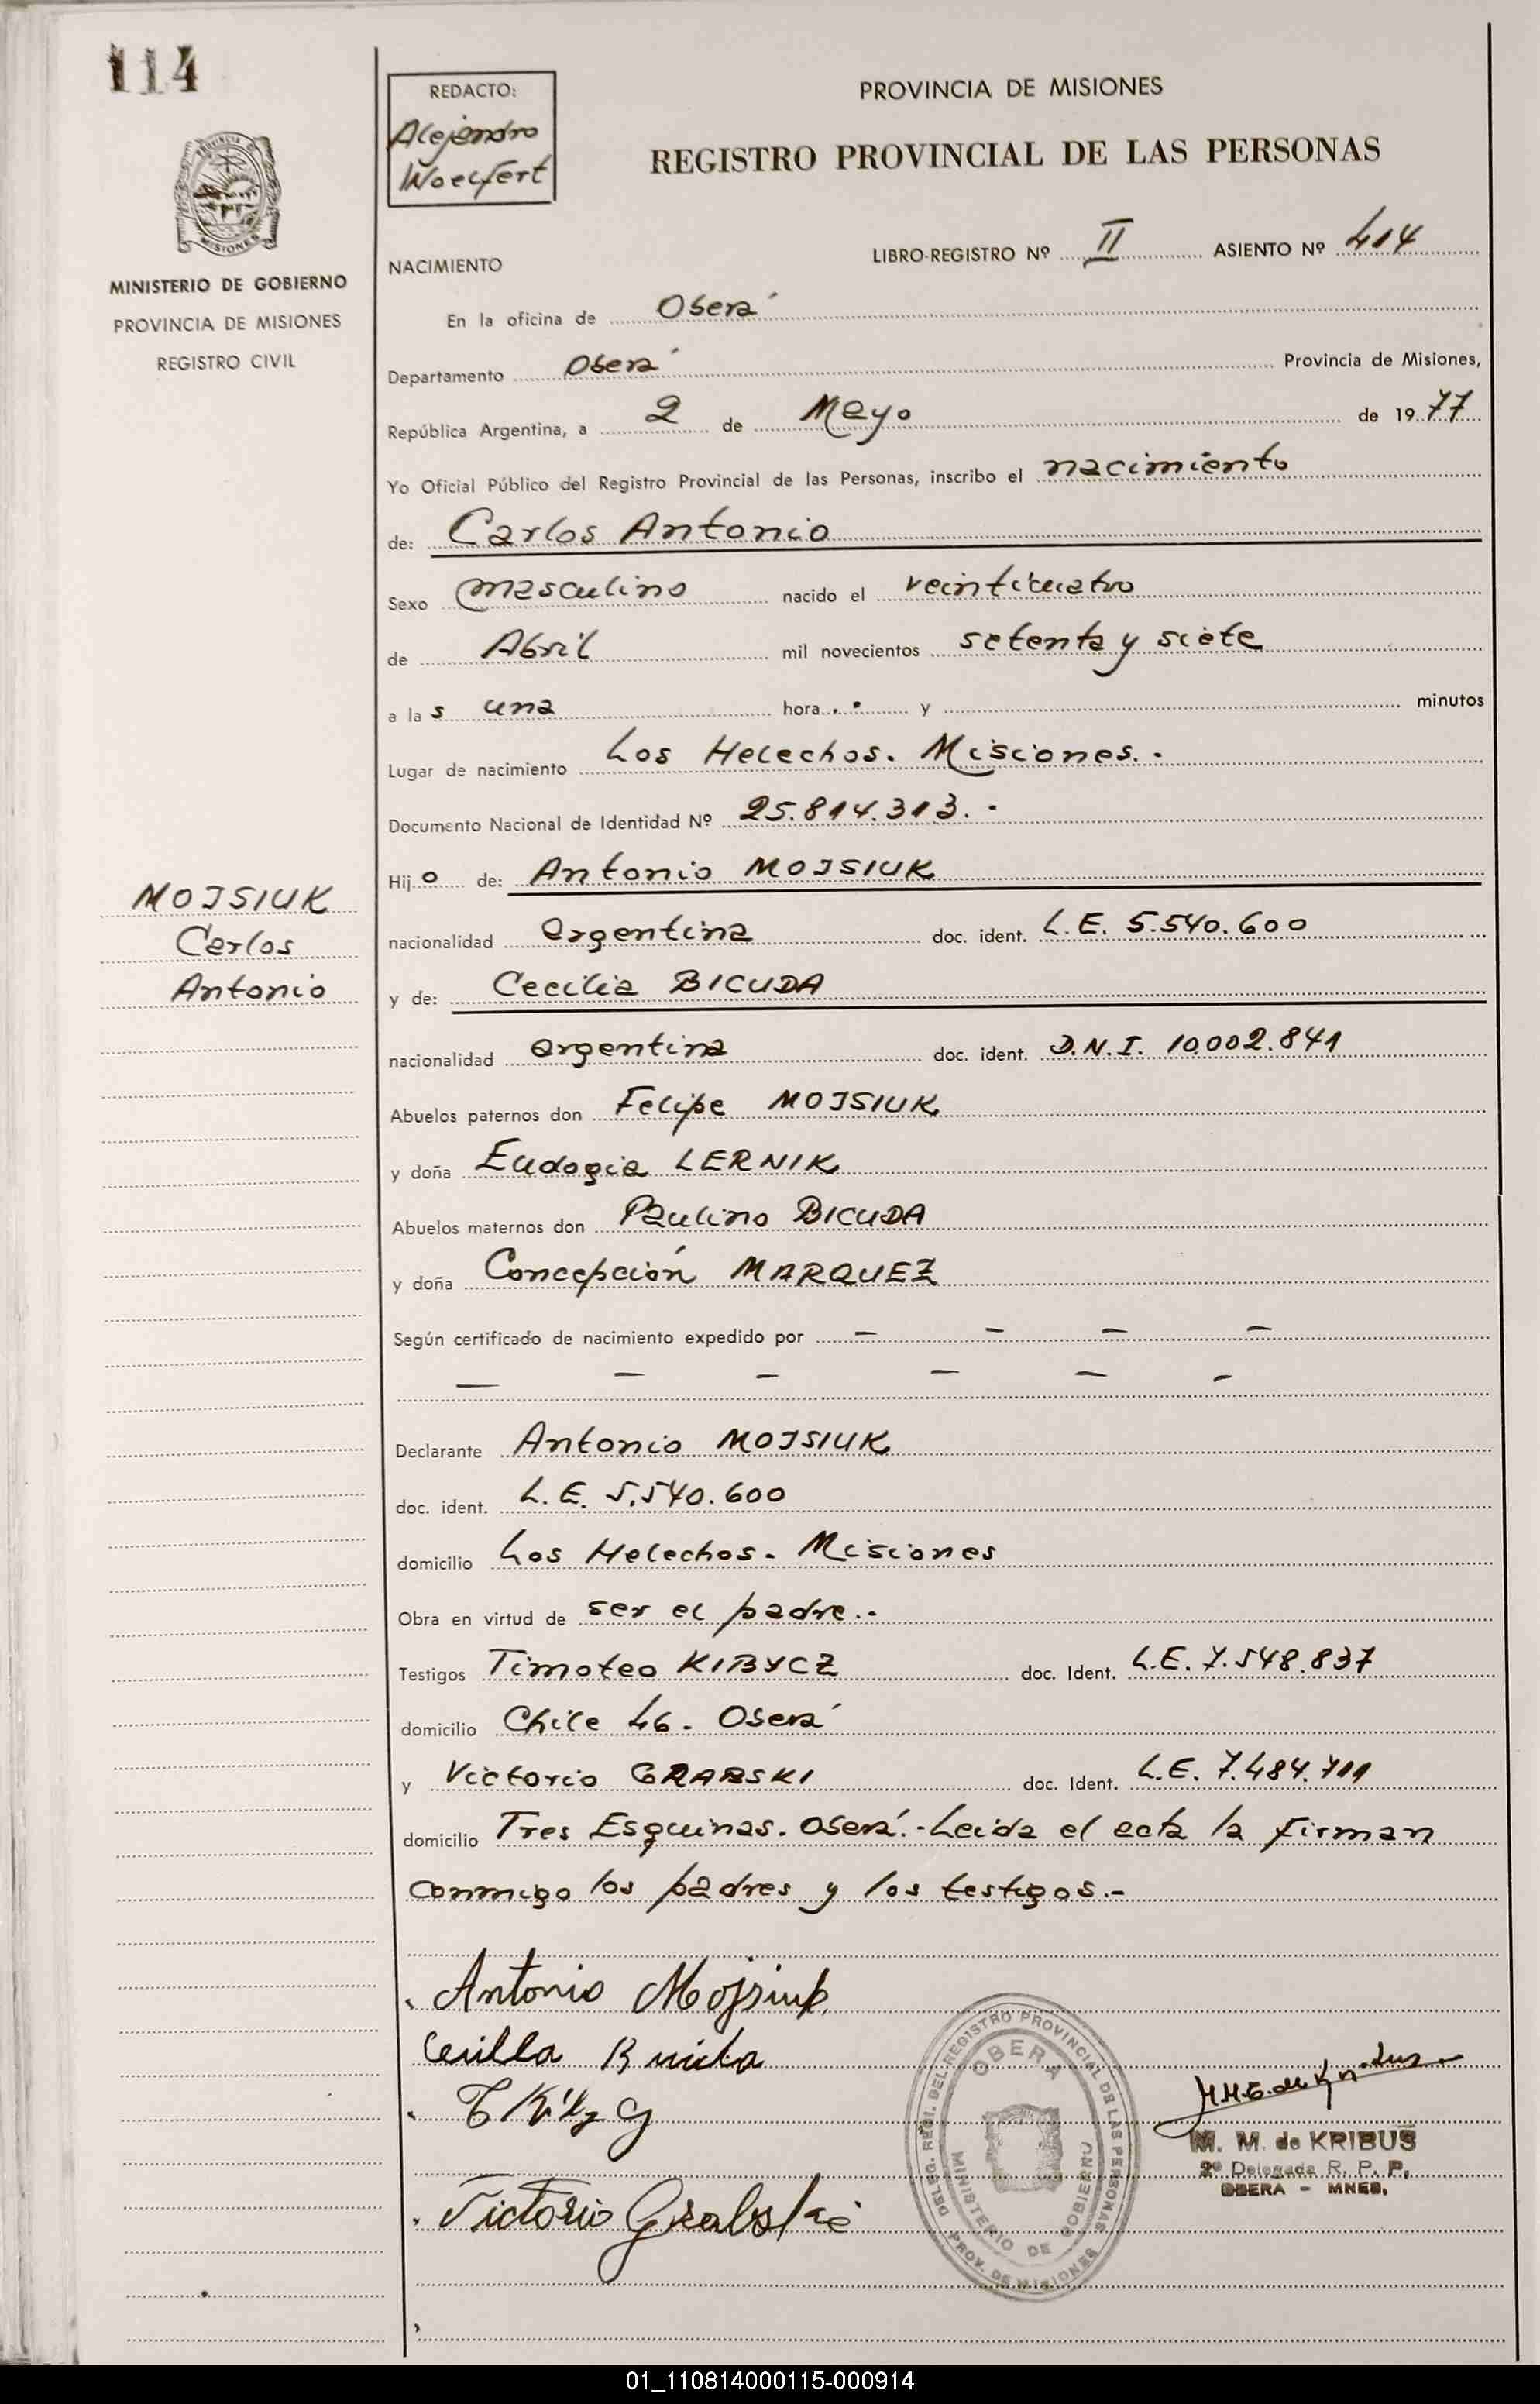 114
REDACTO:
Alejandro
Woelfert
PROVINCIA DE MISIONES
REGISTRO PROVINCIAL DE LAS PERSONAS
PROVINCIA DE
MISIONES
MINISTERIO DE GOBIERNO
PROVINCIA DE MISIONES
REGISTRO CIVIL
LIBRO-REGISTRO Nº II ASIENTO Nº 414
NACIMIENTO
En la oficina de Oberá
Departamento Oberá Provincia de Misiones,
República Argentina, a 2 de Mayo de 1977
Yo Oficial Público del Registro Provincial de las Personas, inscribo el nacimiento
de: Carlos Antonio
Sexo masculino nacido el veinticuatro
de Abril mil novecientos setenta y siete
a las una hora . . y minutos
Lugar de nacimiento Los Helechos. Misiones.-
Documento Nacional de Identidad Nº 25.814.313.-
Hijo de: Antonio MOJSIUK
MOJSIUK
Carlos
Antonio
nacionalidad argentina doc. ident. L.E. 5.540.600
y de: Cecilia BICUDA
nacionalidad argentina doc. ident. D.N.I. 10.002.841
Abuelos paternos don Felipe MOJSIUK
y doña Eudogia LERNIK
Abuelos maternos don Paulino BICUDA
y doña Concepción MARQUEZ
Según certificado de nacimiento expedido por — — — —
— — — — — —
Declarante Antonio MOJSIUK
doc. ident. L.E. 5.540.600
domicilio Los Helechos. Misiones
Obra en virtud de ser el padre.-
Testigos Timoteo KIBYCZ doc. Ident. L.E. 7.548.837
domicilio Chile 46. Oberá
y Victorio GRABSKI doc. Ident. L.E. 7.484.711
domicilio Tres Esquinas. Oberá.- Leida el acta la firman
conmigo los padres y los testigos.-
Antonio Mojsiuk
Victorio Grabski
DELEG. REGI. DEL REGISTRO PROVINCIAL DE LAS PERSONAS
OBERA
MINISTERIO DE GOBIERNO
PROV. DE MISIONES
M. M. de KRIBUS
2º Delegada R. P. P.
OBERA - MNES.
01_110814000115-000914